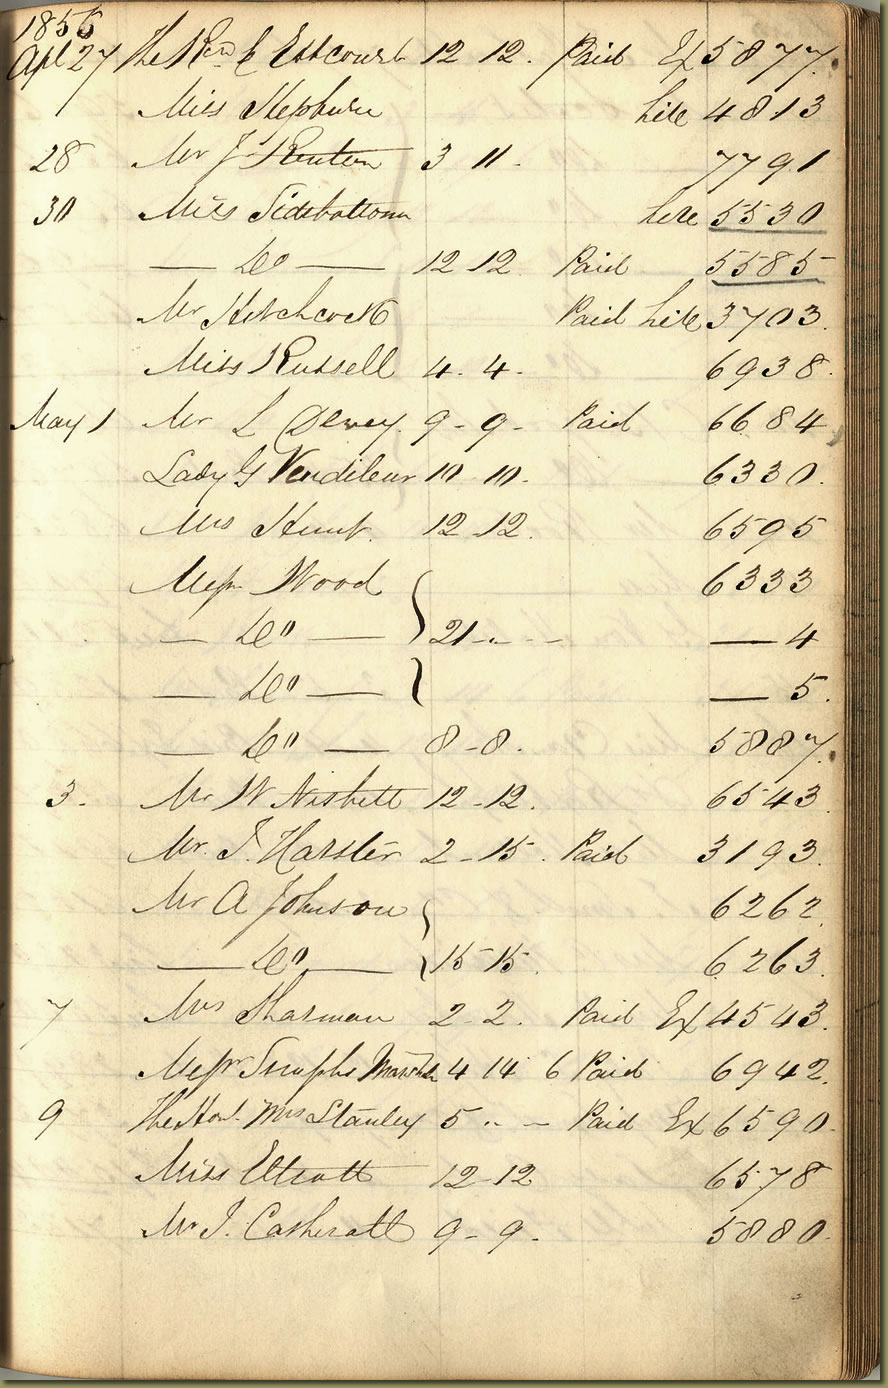 1856
Apl 27 The Revd E Estcourt 12 12. Paid Ex 5877.
Miss Hepburn hire 4813
28 Mr J Renton 3 11 - 7791
30 Miss Sidebottom hire 5530
— Do — 12 12 Paid 5585
Mr Hitchcock Paid hire 3703.
Miss Russell 4. 4. 6938.
May 1 Mr L Dewey. 9 - 9 - Paid 6684
Lady G 10 10. 6330.
Mrs Hunt. 12 12. 6595
Messrs Wood 6333
— Do — 21 .. - — 4
— Do — — 5.
— Do — 8 - 8. 5887.
3. Mr W Nisbett 12 - 12. 6543.
Mr. J. Harsler 2 - 15. Paid 3193.
Mr A Johnson 6262.
— Do — 15 15. 6263.
7 Mrs Sharman 2 - 2. Paid Ex 4543.
Messrs 4 14 6 Paid 6942.
9 The Honl. Mrs Stanley 5 .. - Paid Ex 6590.
Miss Elliott 12 - 12 6578
Mr J. 9 - 9. 5880.